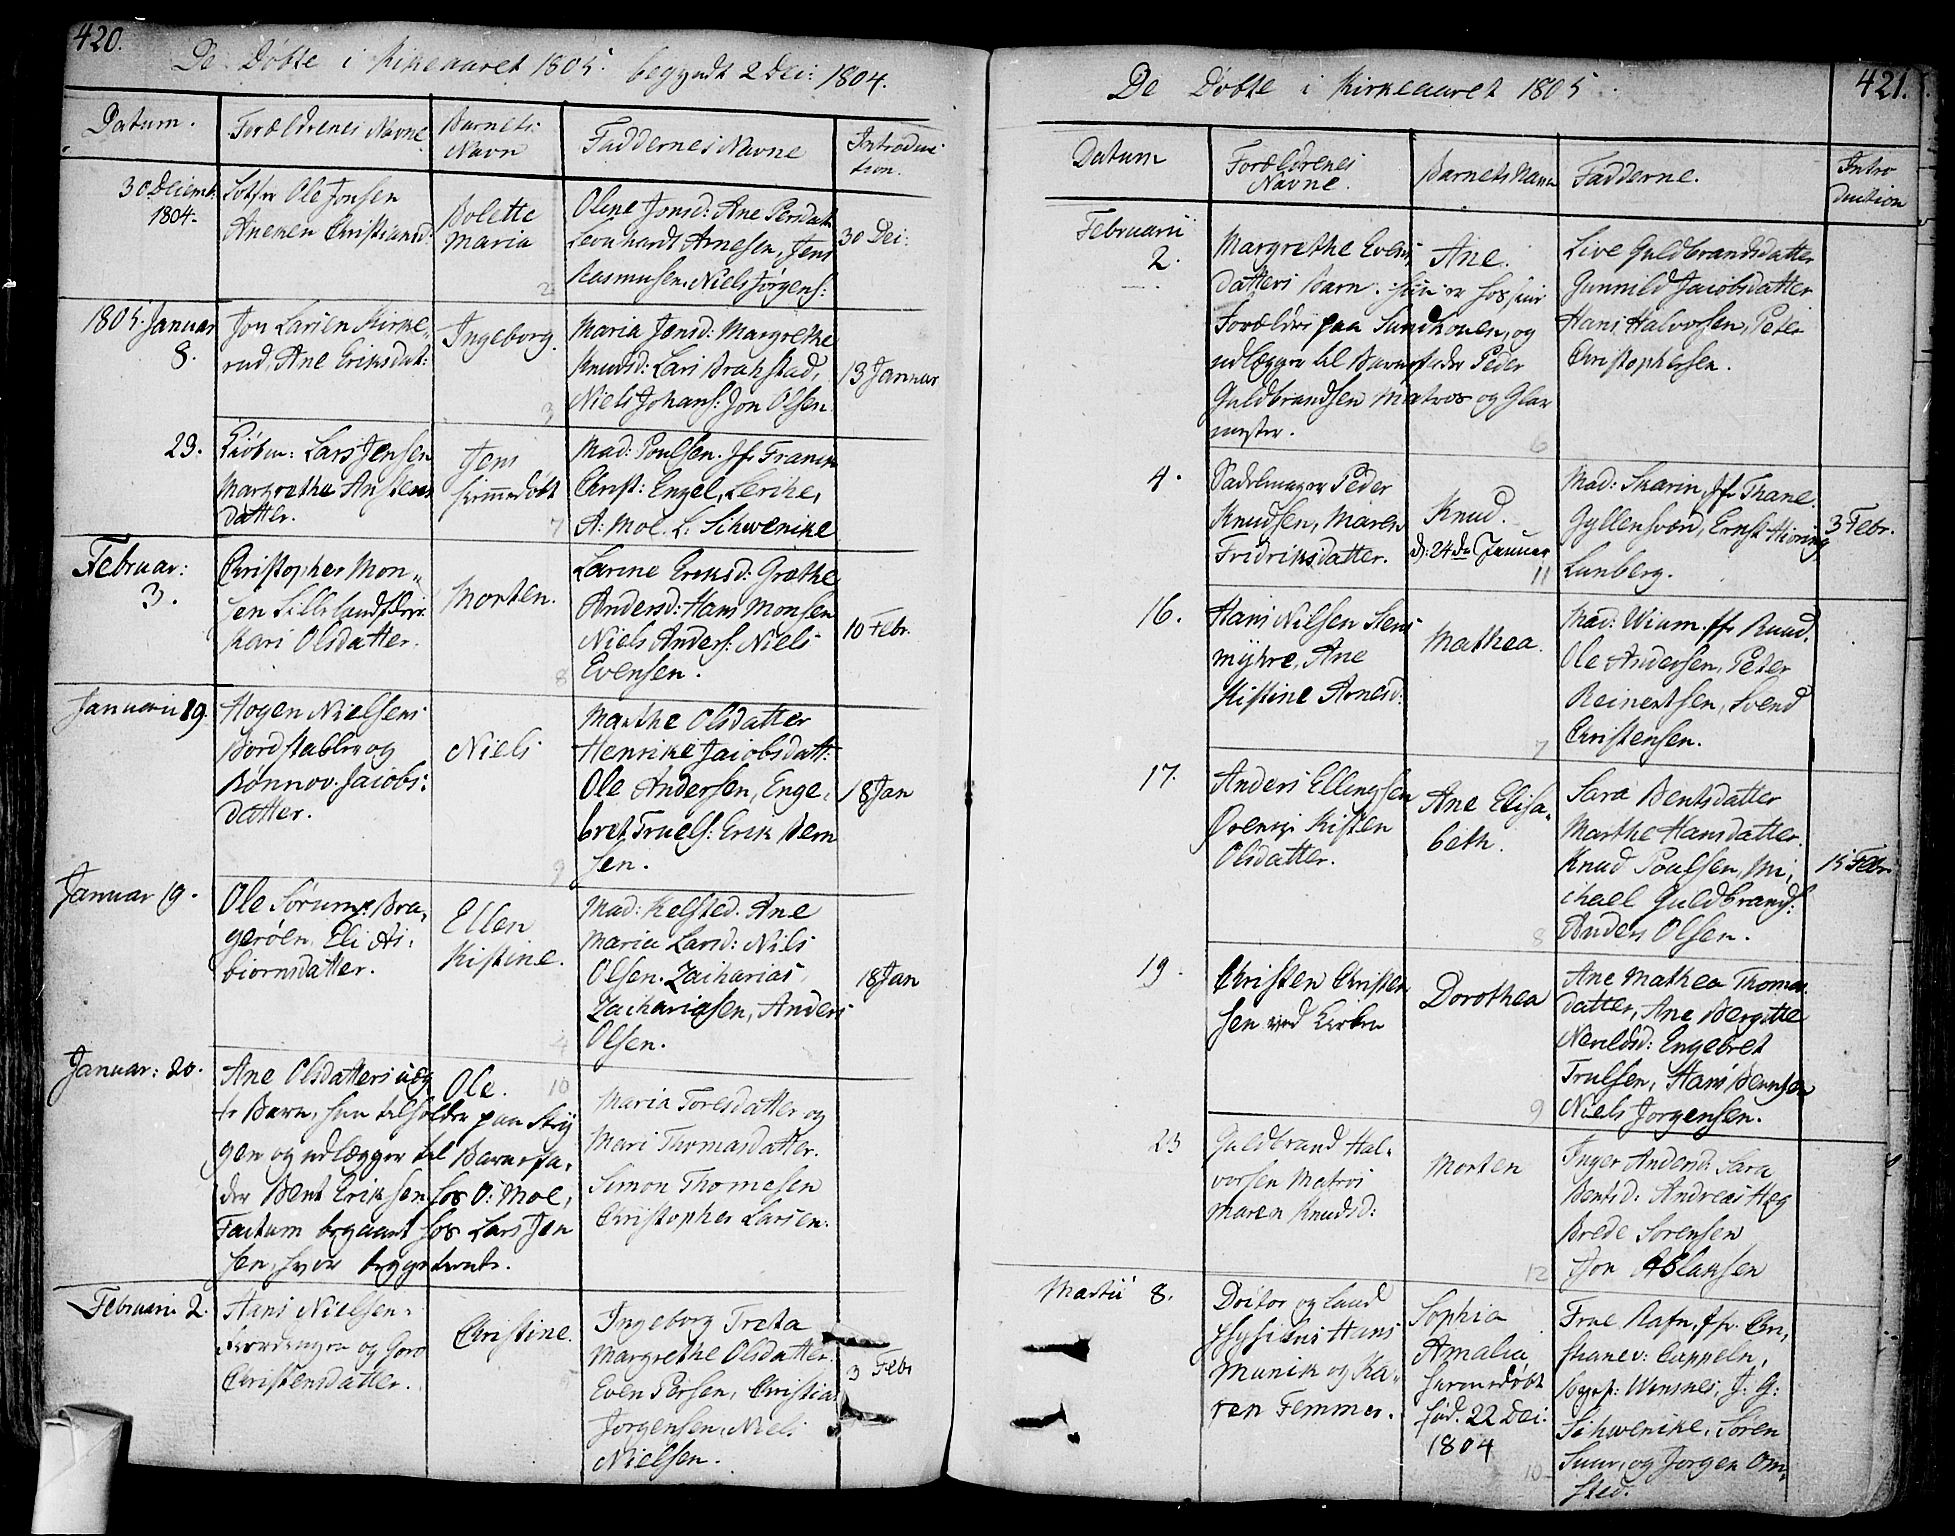 420.
De Døbte i Kirkeaaret 1805. begyndt 2 Dec: 1804.
Datum.
Forældrenes Navne
Barnets
Navn
Faddernes Navne
Introduc
tion.
30 Decemb:
1804.
Ole Jonsen
Anemen Christiansd:
Bolette
Maria
2
Oline Jonsd: Ane Persdatt
Leonhardt Arnesen, Jens
Rasmusen, Niels Jørgens:
30 Dec:
1805. Januar
8.
Jon Larsen Kirke,,
rud, Ane Eriksdat:
Ingeborg.
3
Maria Jonsd: Margrethe
Knudsd: Lars Brakstad,
Niels Johans: Jon Olsen
13 Januar
23.
Lars Jensen
Margrethe Anstens
datter.
Jens
hjemmedøbt
7
Mad: Poulsen. Jf. Franck
Christ: Engel, Lerche,
A: Moe. L: Schwenike
Februar:
3.
Christopher Mon,,
sen
Kari Olsdatter.
Morten.
8
Larine Eriksd: Grethe
Andersd: Hans Monsen
Niels Anders: Niels
Evensen.
10 Febr.
Januarii 19.
Hogen Nielsens
Bordstabler og
Rønnov Jacobs:
datter.
Niels
9
Marthe Olsdatter
Henrike Jacobsdatt:
Ole Andersen, Enge,
bret Truels: Erik Bern
sen.
18 Jan
Januar 19.
Ole Sørum Bra,
gerøen, Eli As,
biørnsdatter.
Ellen
Kistine.
4
Mad: Kelsted. Ane
Maria Larsd: Niels
Olsen. Zacharias
Zachariasen, Anders
Olsen.
18 Jan
Januar: 20.
Ane Olsdatters uæg
te Barn, hun tilholder paa Stry
gen og udlægger til Barnefa,
der Bent Eriksen hos O: Moe,
Factum begaaet hos Lars Jen
sen, hvor begge tiente.
Ole.
10
Maria Toresdatter og
Mari Thomasdatter.
Simon Thomesen
Christopher Larsen.
Februarii 2.
Hans Nielsen
og Goro
Christensdatter.
Christine.
Ingeborg Treta
Margrethe Olsdatter.
Even Persen, Christia
Jørgensen, Niels
Nielsen.
3 Febr
421.
De Døbte i Kirkeaaret 1805.
Datum
Forældrenes
Navne.
Barnets Navn
Fadderne.
Intro
duction
Februarii
2.
Margrethe Evens
datters Barn. hun er hos sine
Forældre paa Sundhougen, og
udlægger til Barnefader Peder
Guldbrandsen Matros og Glar
mester.
Ane.
6
Live Guldbrandsdatter
Gunnild Jacobsdatter
Hans Halvorsen, Peter
Christophersen.
4.
Sadelmager Peder
Knudsen, Maren
Fridriksdatter.
Knud.
d: 24de Januar
11
Mad: Skarin, Jfr Thane.
Gyllensværd, Ernst Hioring
Lunberg.
3 Febr.
16.
Hans Nilsen Stens
myhre, Ane
Kistine Arnesd:
Mathea.
7
Mad: Wium. Jfr Ruud.
Ole Andersen, Peter
Reinertsen, Svend
Christensen.
17.
Anders Ellingsen
Kisten
Olsdatter.
Ane Elisa,
beth.
8
Sara Bentsdatter
Marthe Hansdatter
Knud Poulsen, Mi,
chael Guldbrands:
Anders Olsen.
15 Febr.
19.
Christen Christen
sen ved Kirken
Dorothea
9
Ane Mathea Thomas
datter, Ane Bergitte
Nerildsd: Engebret
Trulsen, Hans Berntsen
Niels Jorgensen.
23
Guldbrand Hal,
vorsen Matros
Maren Knudsd:
Morten
12
Inger Andersd: Sara
Bentsd: Andreas Hæg
Brede Sorensen
Jon Aslaksen
Martii 8.
Doctor og Land
Physicus Hans
Munck og Ka,
ren Femmer.
Sophia
Amalia
hjemmedøbt
fød. 22 Dec:
1804
10
Frue Rafn, Jfr. Chri,
stiane v: Cappeln,
J: G:
Schwenike, Søren
Suur, og Jorgen Om,
sted.